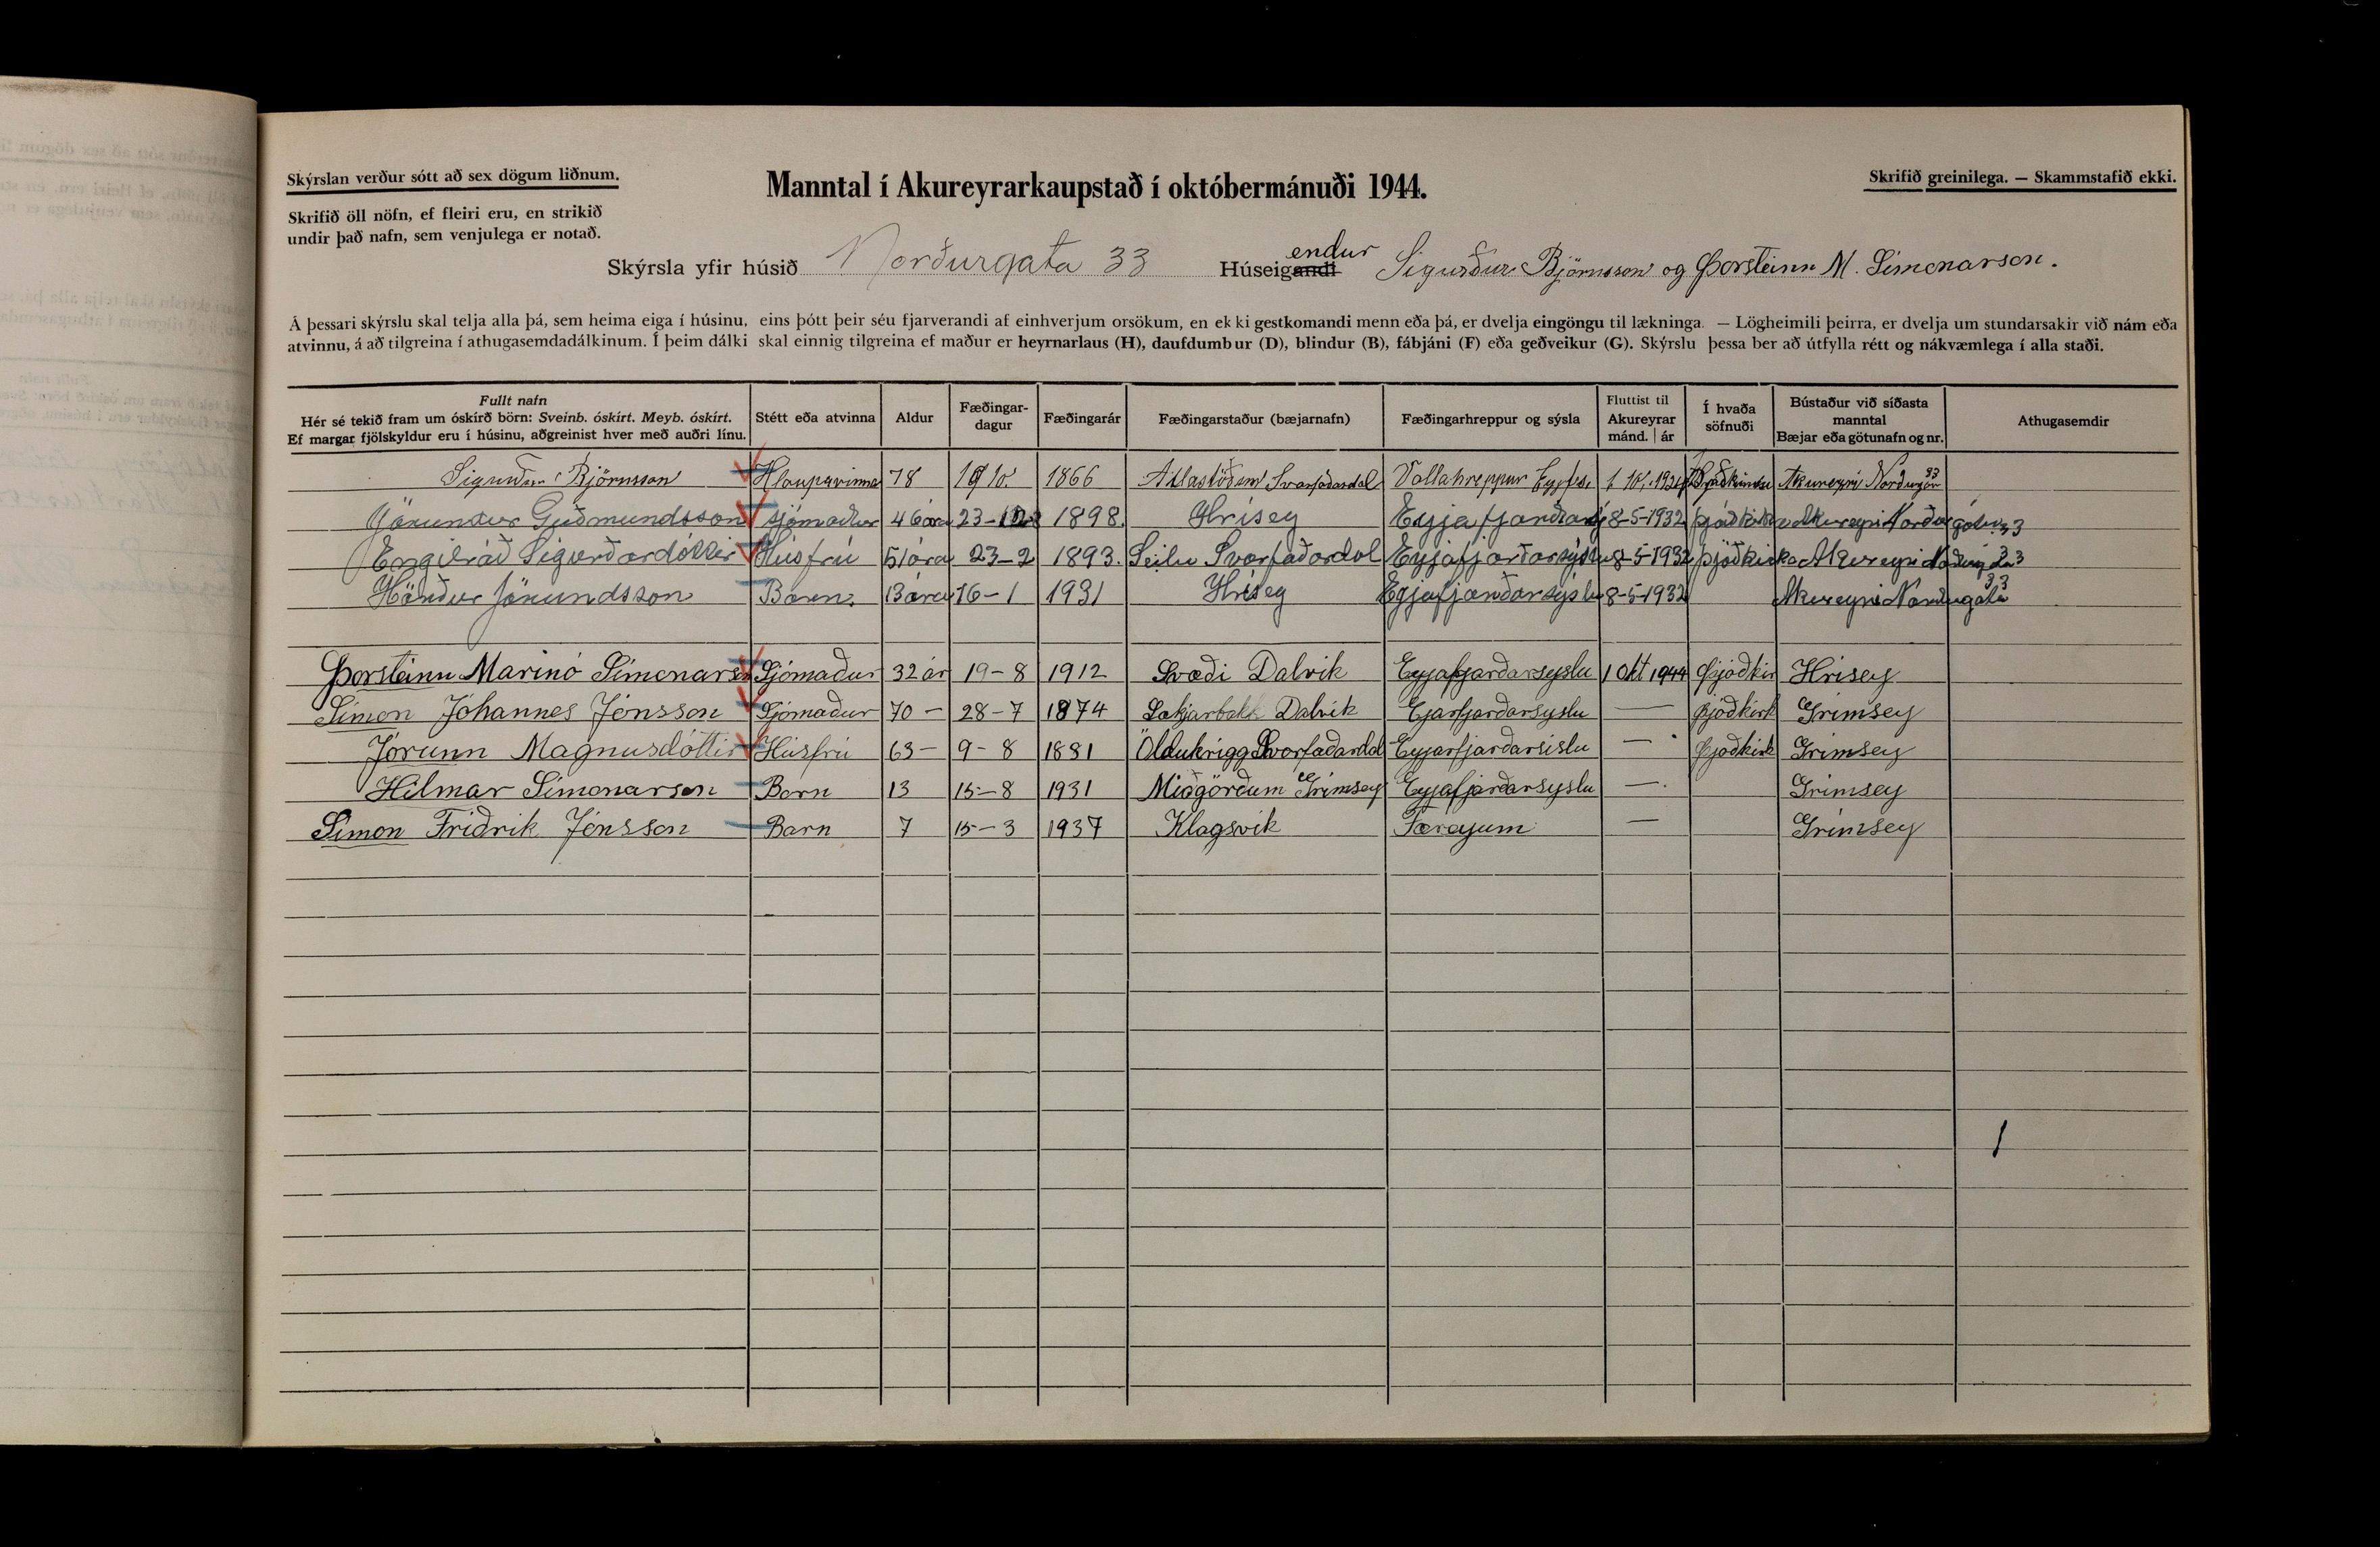 Skýrslan verður sótt að sex dögum liðnum.
Manntal í Akureyrarkaupstað í októbermánuði 1944.
Skrifið greinilega. — Skammstafið ekki.
Skrifið öll nöfn, ef fleiri eru, en strikið
undir það nafn, sem venjulega er notað.
Skýrsla yfir húsið Norðurgata 33 Húseigandi endur Sigurður Björnsson og Þorsteinn M. Símonarson.
Á þessari skýrslu skal telja alla þá, sem heima eiga í húsinu, eins þótt þeir séu fjarverandi af einhverjum orsökum, en ekki gestkomandi menn eða þá, er dvelja eingöngu til lækninga. — Lögheimili þeirra, er dvelja um stundarsakir við nám eða
atvinnu, á að tilgreina í athugasemdadálkinum. Í þeim dálki skal einnig tilgreina ef maður er heyrnarlaus (H), daufdumbur (D), blindur (B), fábjáni (F) eða geðveikur (G). Skýrslu þessa ber að útfylla rétt og nákvæmlega í alla staði.
Fullt nafn
Hér sé tekið fram um óskírð börn: Sveinb. óskírt. Meyb. óskírt.
Ef margar fjölskyldur eru í húsinu, aðgreinist hver með auðri línu.
Stétt eða atvinna
Aldur
Fæðingar-
dagur
Fæðingarár
Fæðingarstaður (bæjarnafn)
Fæðingarhreppur og sýsla
Fluttist til
Akureyrar
mánd. ár
Í hvaða
söfnuði
Bústaður við síðasta
manntal
Bæjar eða götunafn og nr.
Athugasemdir
Sigurður Björnsson Hlaupavinna 78 1866 Svarfaðardal Vallahreppur Akureyri Norðurgöt 33
Jörundur Guðmundsson sjómaður 46 ára 1898. Hrísey 8-5-1932 Akureyri Norðurgötu 33
Engilráð Sigurðardóttir Húsfrú 51 ára 23-2 1893. Svarfaðardal Eyjafjarðarsýslu 8-5-1932 þjóðkirka Akureyri 33
Hörður Jörundsson Barn. 13 ára 16-1 1931 Hrísey Eyjafjarðarsýslu 8-5-1932 Akureyri Norðugata 33
Þorsteinn Marinó Símonars Sjómaður 32 ár 19-8 1912 Svæði Dalvik Eyjafjarðarsyslu 1 Okt 1944 Þjóðkir Hrisey
Símon Jóhannes Jónsson Sjómaður 70 — 28-7 1874 Dalvik Ejarfjarðarsyslu — Þjóðkirk Grímsey
Jórunn Magnusdóttir Húsfrú 63 — 9-8 1881 Öldukrigg Svorfaðardal Eyjarfjarðarsislu — Þjoðkirk Grímsey
Hilmar Símonarson Barn 13 15-8 1931 Miðgörðum Grímsey Eyjafjarðarsyslu — Grímsey
Símon Friðrik Jónsson Barn 7 15-3 1937 Klagsvik Færeyum — Grímsey